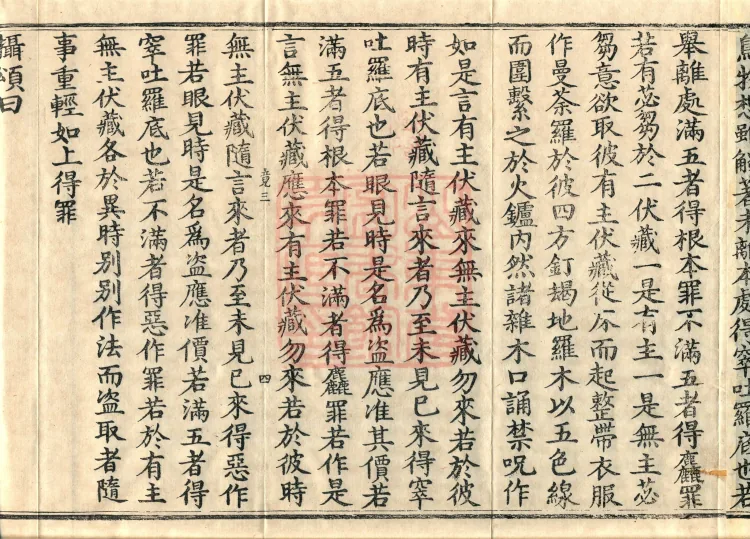 鳥物想雖解著未離本處得窣吐羅底也若
舉離處滿五者得根本罪不滿五者得麤罪
若有苾芻於二伏藏一是有主一是無主苾
芻意欲取彼有主伏藏從床而起整帶衣服
作曼荼羅於彼四方釘竭地羅木以五色線
而圍繫之於火鑪內然諸雜木口誦禁呪作
如是言有主伏藏來無主伏藏勿來若於彼
時有主伏藏隨言來者乃至未見已來得窣
吐羅底也若眼見時是名為盜應准其價若
滿五者得根本罪若不滿者得麤罪若作是
言無主伏藏應來有主伏藏勿來若於彼時
竟三 四
無主伏藏隨言來者乃至未見已來得惡作
罪若眼見時是名為盜應准價若滿五者得
窣吐羅底也若不滿者得惡作罪若於有主
無主伏藏各於異時別別作法而盜取者隨
事重輕如上得罪
攝頌曰